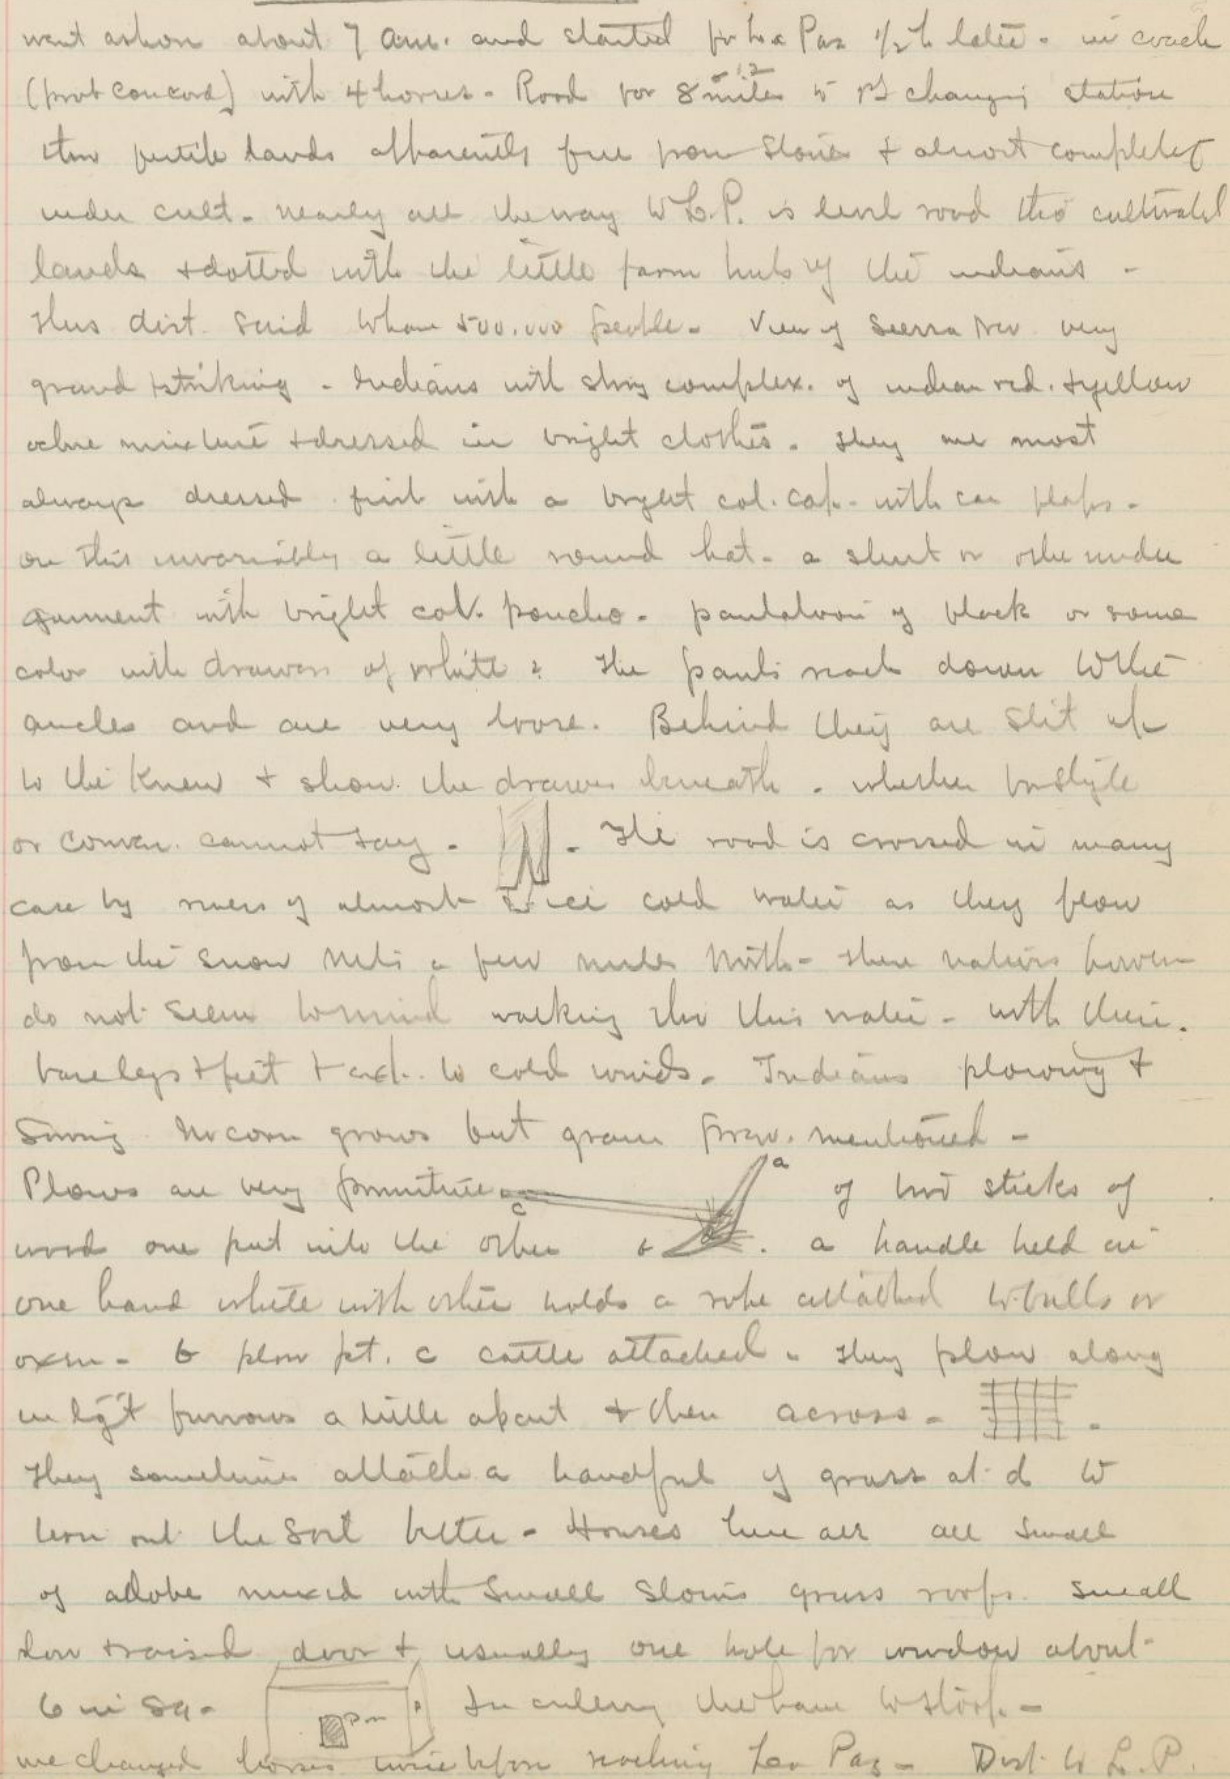 went ashore about 7 am. and started for La Paz 1/2 h later - in coach
(prob Concord) with 4 horses - Road for 8 miles to 1st changing station
thru fertile lands apparently free from stones & almost completely
under cult. nearly all the way to L.P. is level road thro cultivated
lands & dotted with the little farm huts of the indians -
this dist. said to have 500,000 people - View of Sierra Nev. very
grand & striking - Indians with complex. of indian red. & yellow
ochre mixture & dressed in bright clothes. They are most
always dressed first with a bright col. cap. with ear flaps -
on this invariably a little round hat - a shirt or other under
garment with bright col. poncho - pantaloons of black or some
color with drawers of white. The pants reach down to the
ancles and are very loose. Behind they are slit up
to the knew & show the drawers beneath - whether for style
or conven. cannot say - . The road is crossed in many
case by rivers of almost ice cold water as they flow
from the snow mts a few miles - these natives however
do not seem to mind walking thro this water - with their
bare legs & feet & exp. to cold winds - Indians plowing &
No corn grows but grain prev. mentioned -
Plows are very primitive c a of two sticks of
wood one put into the other b . a handle held in
one hand while with other holds a rope attached to bulls or
oxen - b plow pt. c cattle attached - they plow along
in lgt furrows a little apart & then across -
They sometimes attach a handful of grass at d to
turn out the soil better - Houses here are all small
of adobe mixed with small stones grass roofs. small
low & raised door & usually one hole for window about
6 in sq - In entering they have to stoop -
we changed horses twice before reaching La Paz - Dist. to L.P.